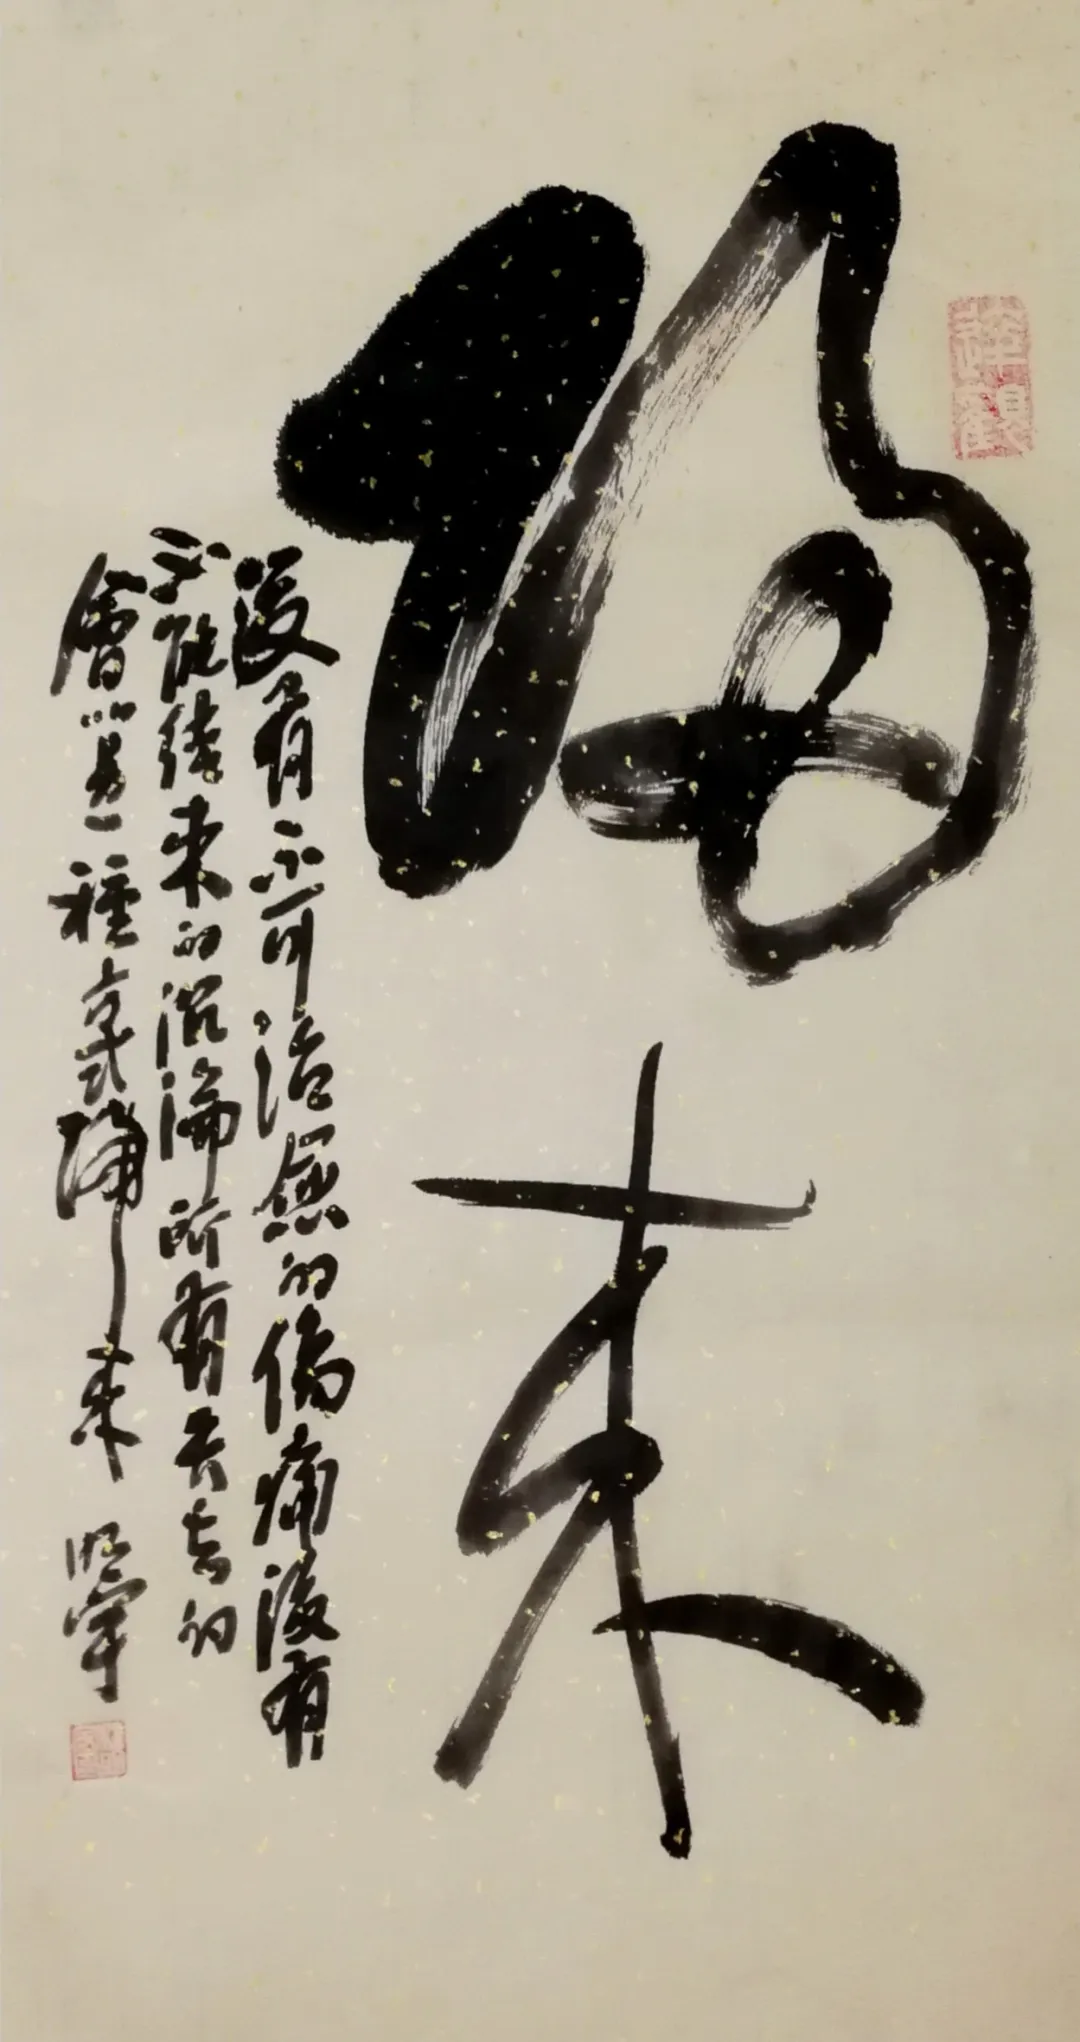 達觀
歸來
沒有不可治愈的傷痛沒有
不能结束的沉淪所有失去的
會以另一種方式歸來